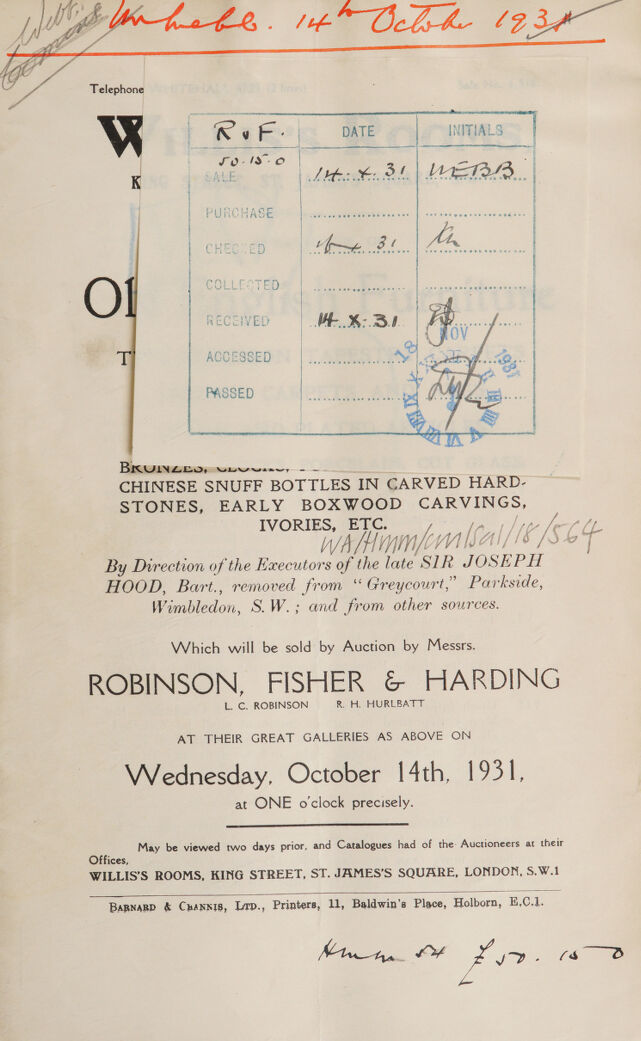 Webb.
Mr Webb. 14th October 1931
Telephone
W
K
Ol
T
R & F. DATE INITIALS
50.15.0
SALE 14.X.31 WEBB
PURCHASE
CHECKED 31
COLLECTED
RECEIVED 14.X.31
ACCESSED
PASSED
18 NOV 1931
BRONZES, CLOCKS,
CHINESE SNUFF BOTTLES IN CARVED HARD-
STONES, EARLY BOXWOOD CARVINGS,
IVORIES, ETC.
WA/Hmm/cm/Sal/18/564
By Direction of the Executors of the late SIR JOSEPH
HOOD, Bart., removed from "Greycourt," Parkside,
Wimbledon, S.W.; and from other sources.
Which will be sold by Auction by Messrs.
ROBINSON, FISHER & HARDING
L. C. ROBINSON R. H. HURLBATT
AT THEIR GREAT GALLERIES AS ABOVE ON
Wednesday, October 14th, 1931,
at ONE o'clock precisely.
May be viewed two days prior, and Catalogues had of the Auctioneers at their
Offices,
WILLIS'S ROOMS, KING STREET, ST. JAMES'S SQUARE, LONDON, S.W.1
BARNARD & CRANNIS, LTD., Printers, 11, Baldwin's Place, Holborn, E.C.1.
54 £50.15.0